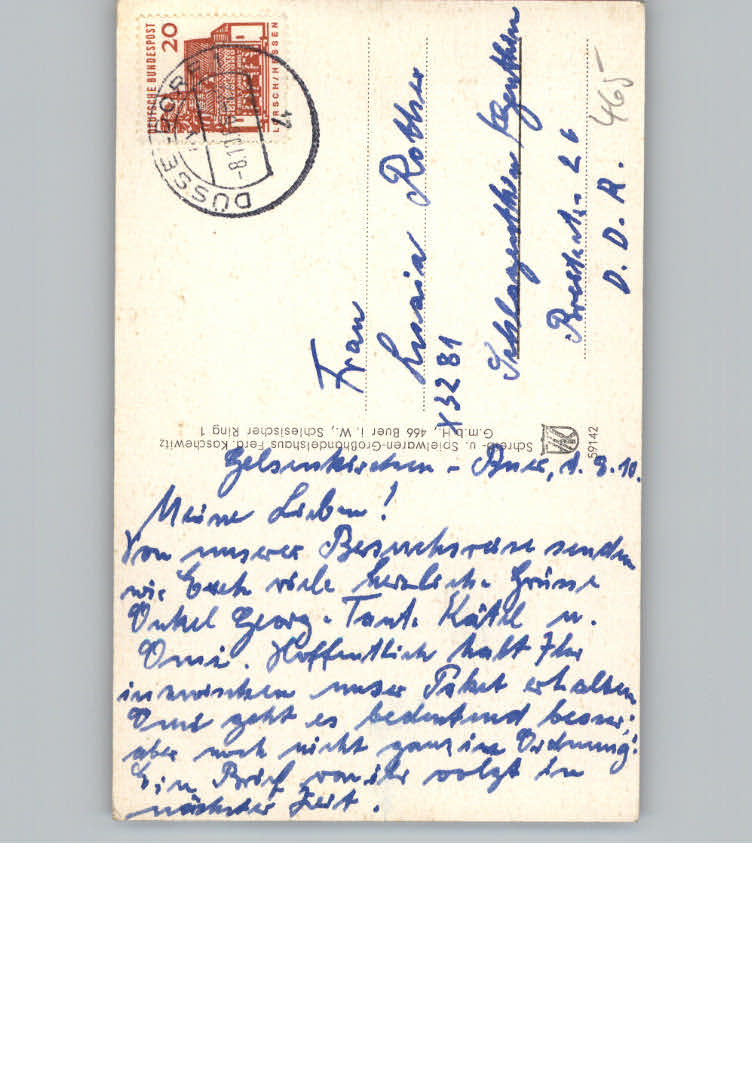 DEUTSCHE BUNDESPOST
20
LORSCH/HESSEN
DÜSSELDORF
17
465
Frau
Rother
X 3281
Schlagenthin
D. D. R.
Schreib- u. Spielwaren-Großhandelshaus Ferd. Kaschewitz
G.m.b.H., 466 Buer i. W., Schlesischer Ring 1
59142
Gelsenkirchen - Buer, 10.
Meine Lieben!
Von unserer Besuchsreise senden
wir Euch viele herzliche Grüsse
Onkel Georg - Tante Kätel u.
Omi. Hoffentlich habt Ihr
inzwischen unser Paket erhalten
Omi geht es bedeutend besser,
aber noch nicht ganz in Ordnung!
Ein Brief von ihr volgt in
nächster Zeit.